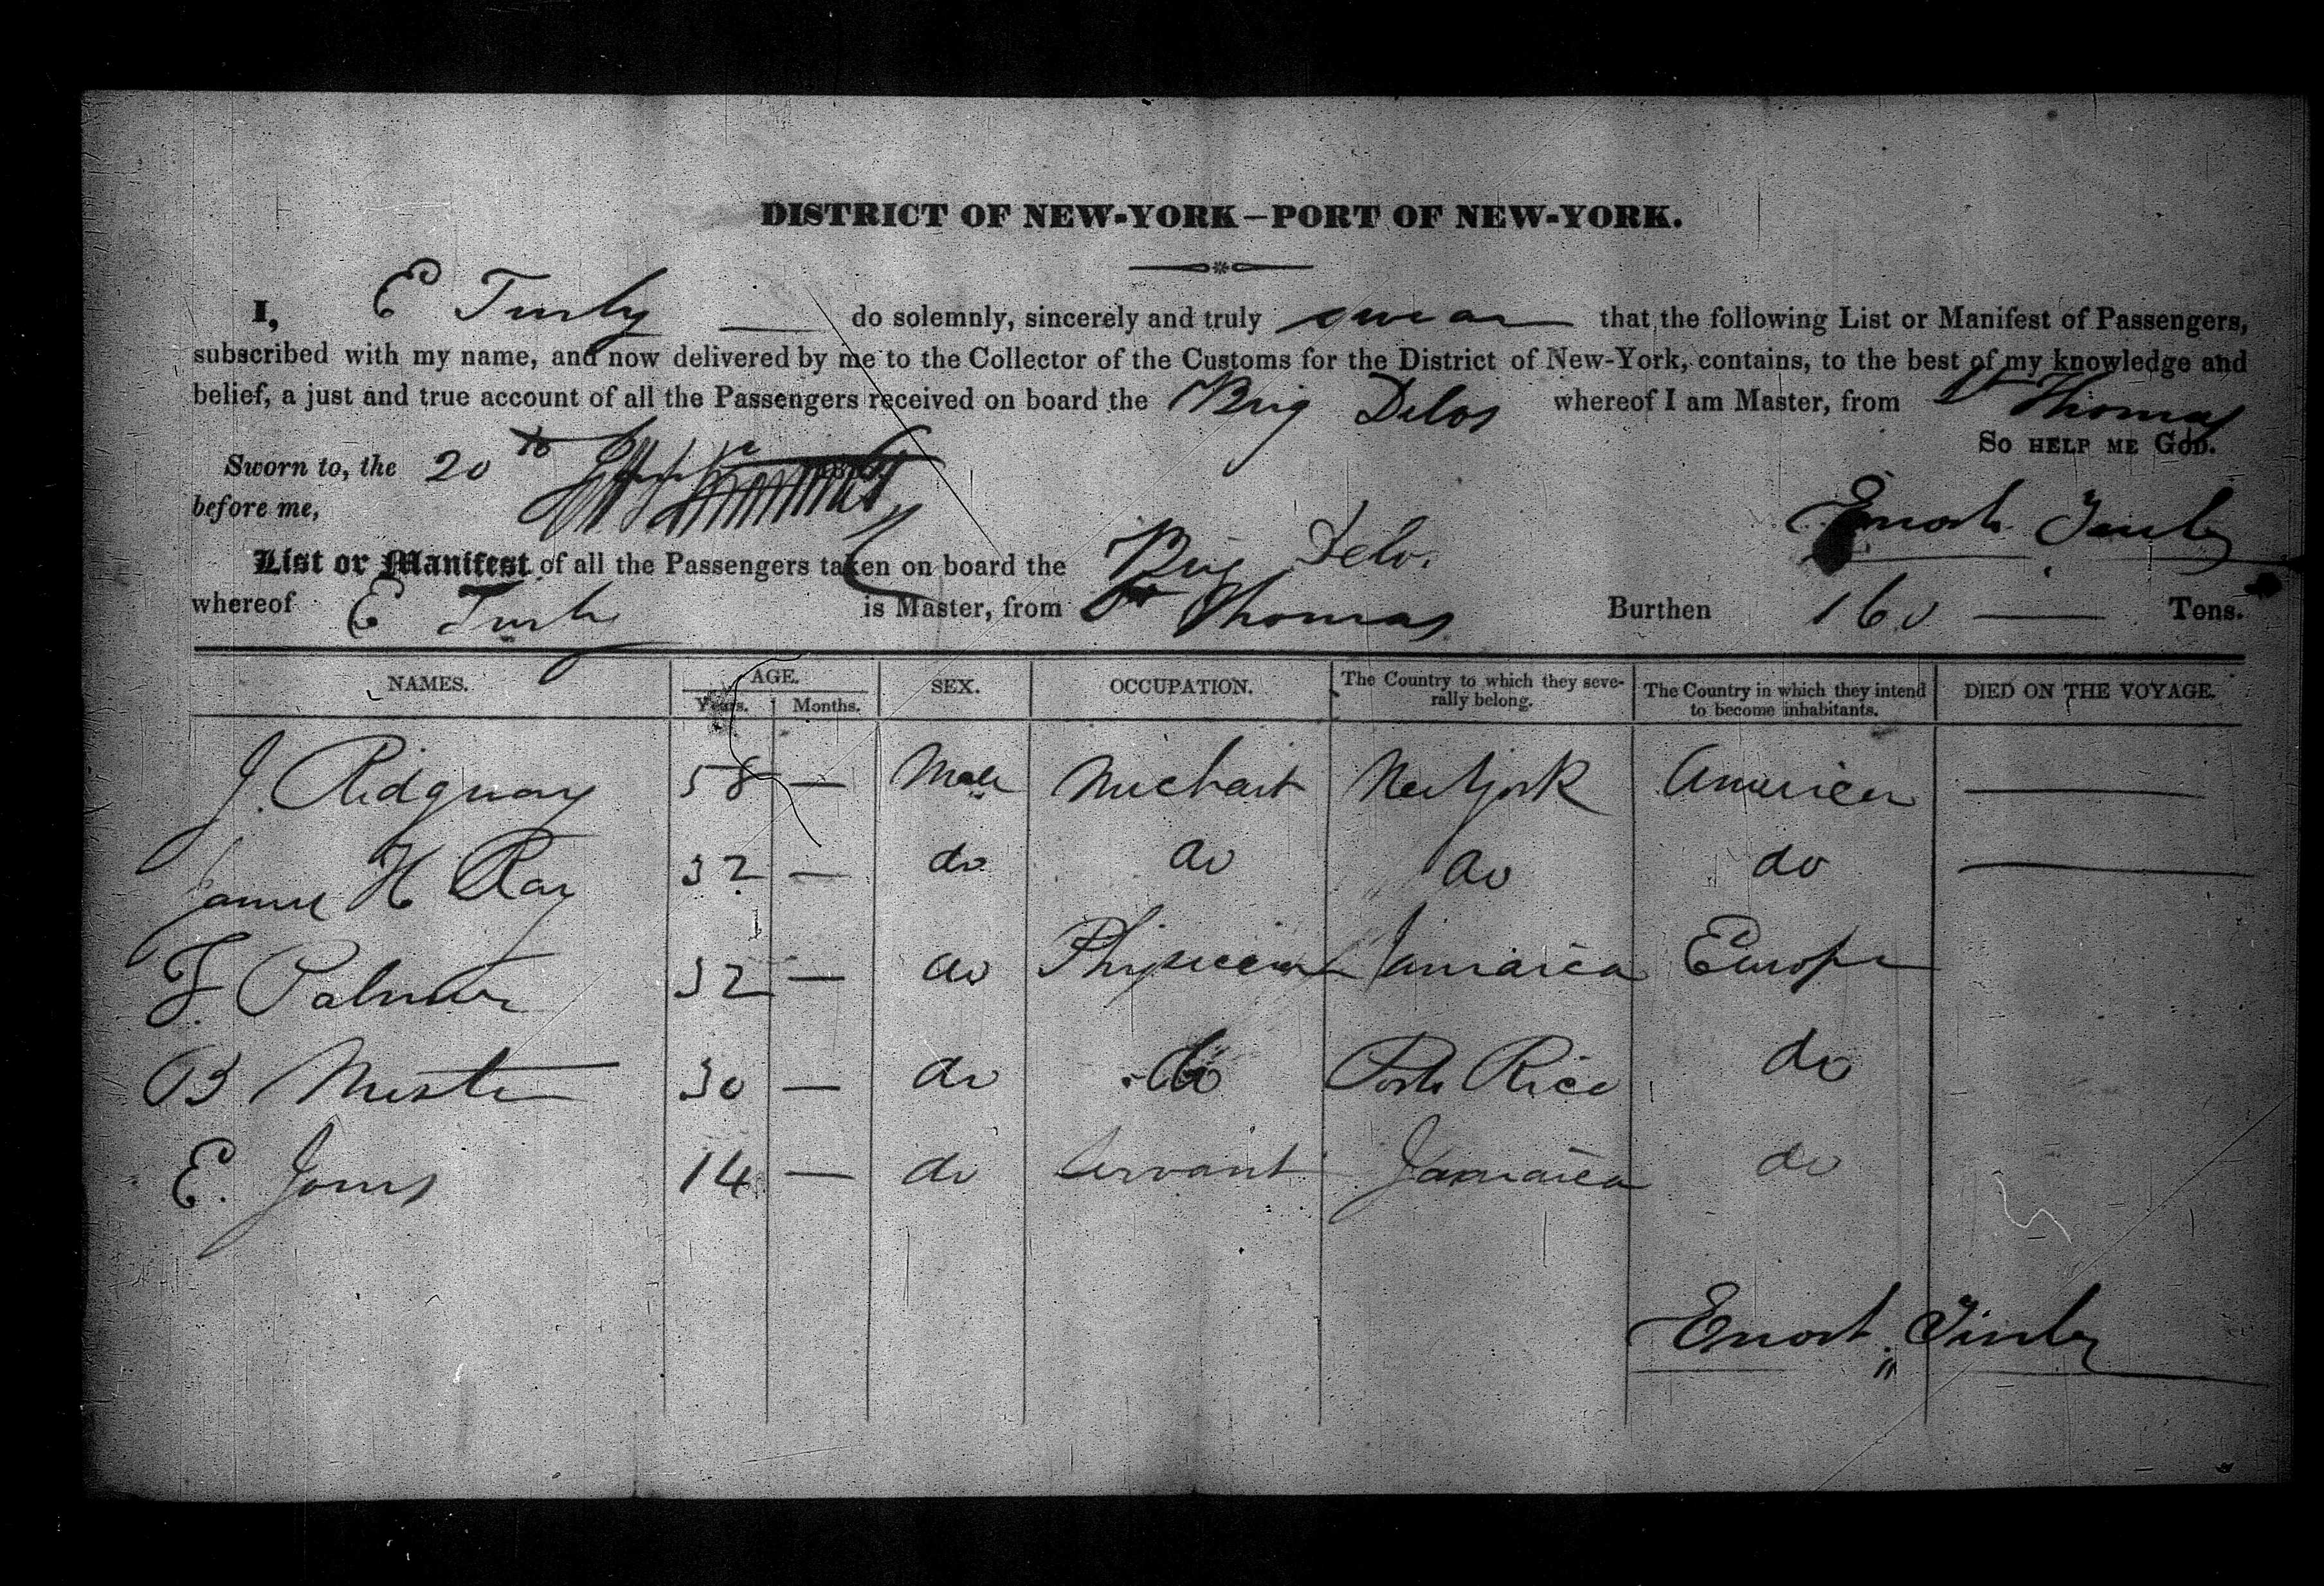 DISTRICT OF NEW-YORK—PORT OF NEW-YORK.
I, E Turly — do solemnly, sincerely and truly swear that the following List or Manifest of Passengers,
subscribed with my name, and now delivered by me to the Collector of the Customs for the District of New-York, contains, to the best of my knowledge and
belief, a just and true account of all the Passengers received on board the Brig Delos whereof I am Master, from St Thomas
So HELP ME GOD.
Sworn to, the 20th
before me,
Enoch
List or Manifest of all the Passengers taken on board the Brig Delos
whereof E is Master, from St Thomas Burthen 160 — Tons.
NAMES. AGE. Years. Months. SEX. OCCUPATION. The Country to which they severally belong. The Country in which they intend to become inhabitants. DIED ON THE VOYAGE.
J. Ridgway 58 — Male Merchant New York America —
James H Ray 32 — do do do do —
F. Palmer 32 — do Physician Jamaica Europe
B 30 — do do Porto Rico do
E. Jones 14 — do Servant Jamaica do
Enoch